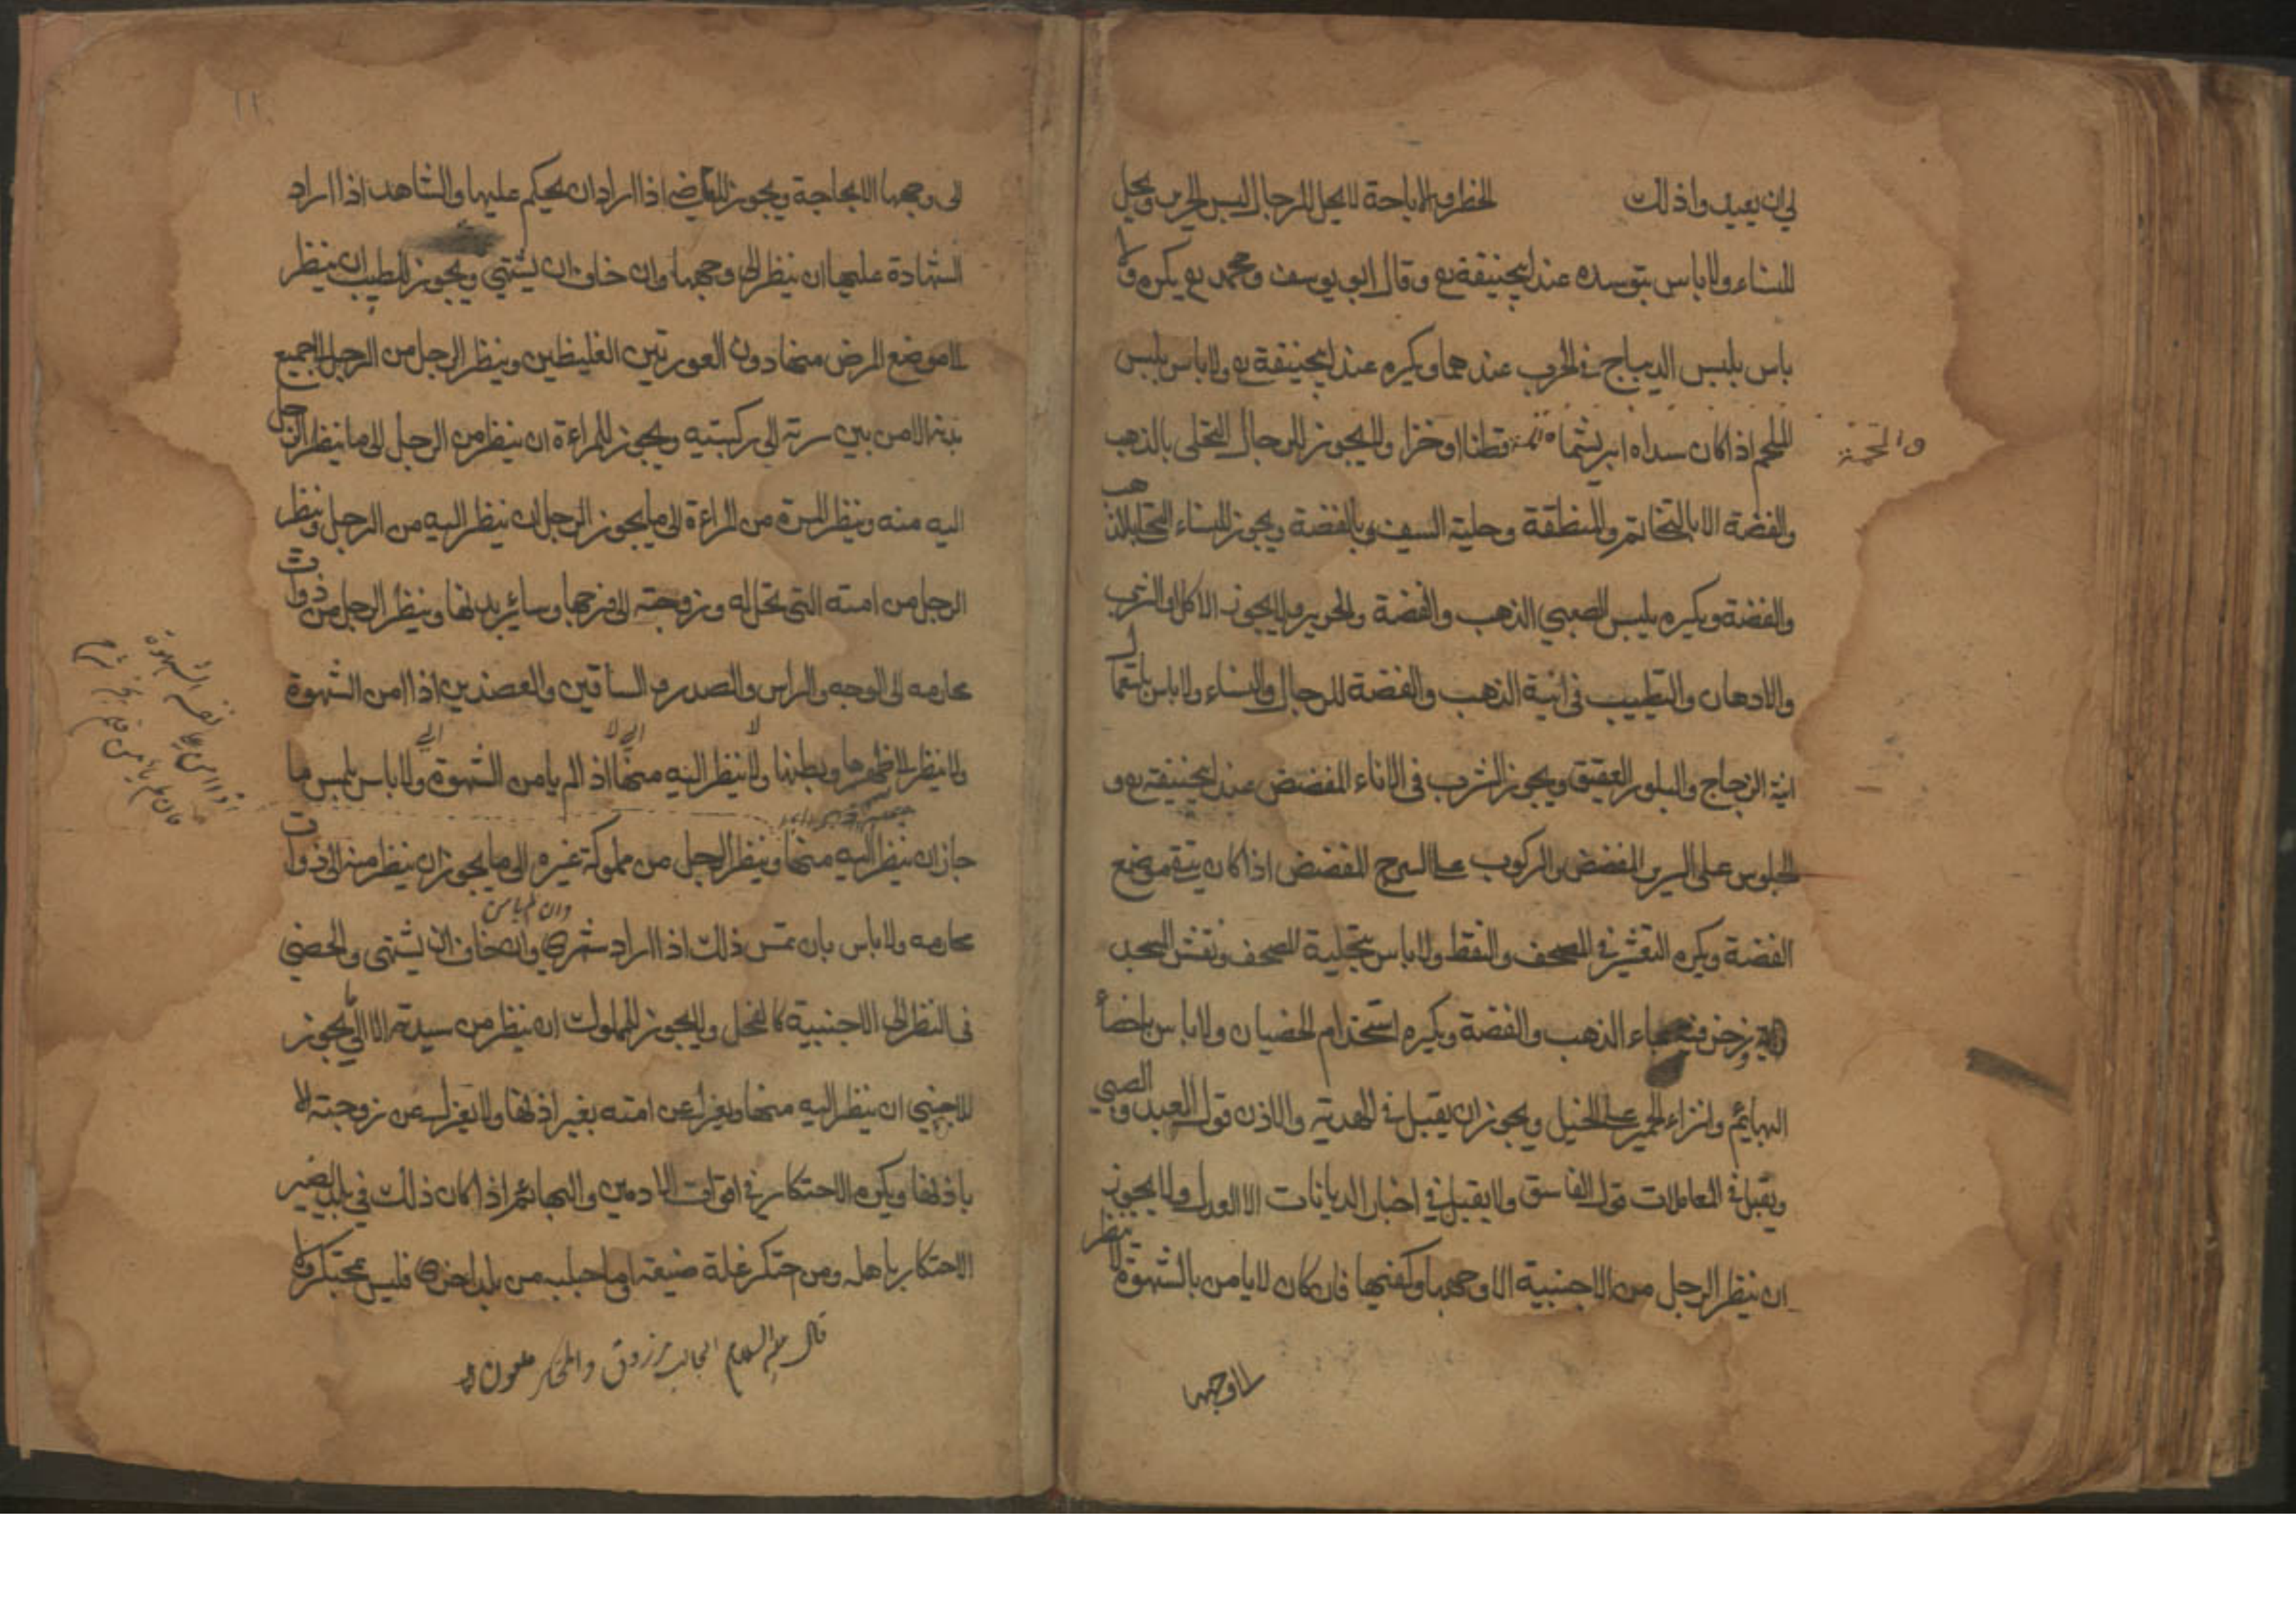 لي ان يعيد واذلك الحظر والاباحة لا يحل للرجال لبس الحرير ويحل
للنساء ولا باس بتوسده عند ابيحنيفة رح وقال ابو يوسف ومحمد رح يكره ولا
باس بلبس الديباج في الحرب عندهما ويكره عند ابيحنيفة رح ولا باس بلبس
الملحم اذا كان سداه ابريشما قطنا او خزا ولا يجوز للرجال التحلى بالذهب
والفضة الا بالخاتم والمنطقة وحلية السيف بالفضة ويجوز للنساء التحلى بالذهب
والفضة ويكره يلبس الصبي الذهب والفضة والحرير ولا يجوز الاكل والشرب
والادهان والتطيب في انية الذهب والفضة للرجال والنساء ولا باس باستعمال
انية الزجاج والبلور والعقيق ويجوز الشرب فى الاناء المفضض عند ابيحنيفة رح و
الجلوس على السرير المفضض والركوب على السرج المفضض اذا كان يتقى موضع
الفضة ويكره التعشير في المصحف والنقط ولا باس بتحلية المصحف ونقش المسجد
وزخرفته بماء الذهب والفضة ويكره استخدام الخصيان ولا باس باخصاء
البهايم وانزاء الحمير على الخيل ويجوز ان يقبل في الهدية والاذن قول العبد والصبي
ويقبل في المعاملات قول الفاسق ولا يقبل في اخبار الديانات الا العدل ولا يجوز
ان ينظر الرجل من الاجنبية الا وجهها وكفيها فان كان لا يامن بالشهوة لا ينظر
الا وجهها
والحمة
الى وجهها الا لحاجة ويجوز للقاضي اذا اراد ان يحكم عليها والشاهد اذا اراد
الشهادة عليها ان ينظر الى وجهها وان خاف ان يشتهي ويجوز للطبيب ان ينظر
الى موضع المرض منها دون العورتين الغليظين وينظر الرجل من الرجل الى جميع
بدنه الا من بين سرته الى ركبته ويجوز للمراءة ان ينظر من الرجل الى ما ينظر الرجل
اليه منه وينظر المرة من المراءة الى ما يجوز الرجل ان ينظر اليه من الرجل وينظر
الرجل من امته التى تحل له وزوجته الى فرجها وسائر بدنها وينظر الرجل من ذوات
محارمه الى الوجه والرأس والصدر والساقين والعضدين اذا امن الشهوة
ولا ينظر الى ظهرها وبطنها ولا ينظر اليه منها اذا لم يامن الشهوة ولا باس بلمس ما
جاز ان ينظر اليه منها وينظر الرجل من مملوكة غيره الى ما يجوز ان ينظر منه الى ذوات
محارمه ولا باس بان تمس ذلك اذا اراد شرى وان خاف ان يشتهى والخصي
وان لم يامن
فى النظر الى الاجنبية كالفحل ولا يجوز للمملوك ان ينظر من سيدته الا الى ما يجوز
للاجنبي ان ينظر اليه منها ويعزل عن امته بغير اذنها ولا يعزل عن زوجته الا
باذنها ويكره الاحتكار في اقوات الادمين والبهائم اذا كان ذلك في بلد يضر
الاحتكار باهله ومن احتكر غلة ضيعته او ما جلبه من بلد اخرى فليس بمحتكر ولا
قال عليه السلام الجالب مرزوق والمحتكر ملعون